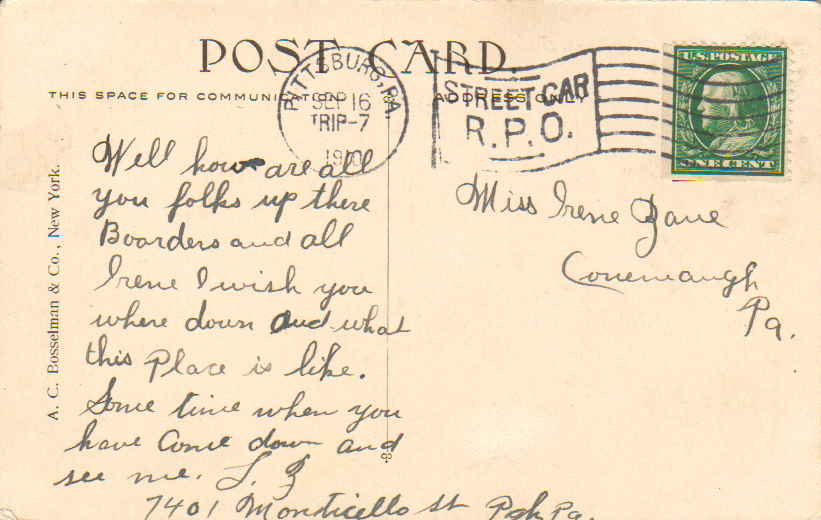 POST CARD.
THIS SPACE FOR COMMUNICATION
ADDRESS ONLY
PITTSBURG, PA.
SEP 16
TRIP-7
1910
STREET CAR
R.P.O.
U.S. POSTAGE
ONE CENT
A. C. Bosselman & Co., New York.
Well how are all
you folks up there
Boarders and all
Irene I wish you
where down and what
this Place is like.
Some time when you
have Come down and
see me. J. Z
7401 Monticello St Pgh Pa.
Miss Irene Zane
Conemaugh
Pa.